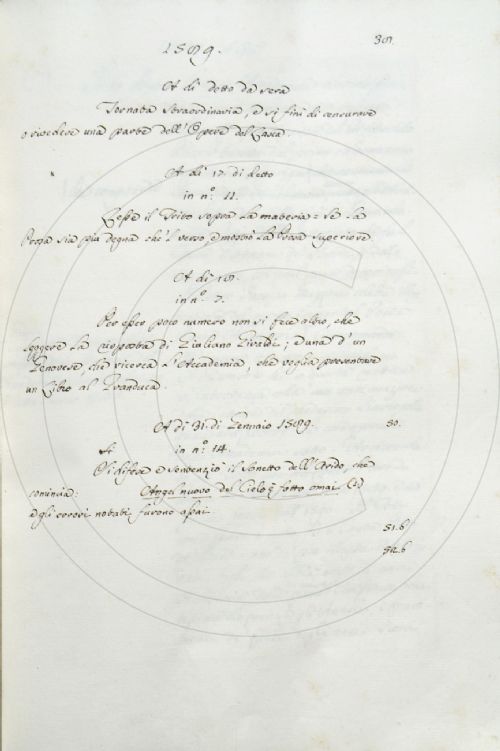 1589.
A di detto da sera
Tornata straordinaria, e si finì di censurare
o rivedere una parte dell'Opere del Casa.
A di 17. di detto
in nº. 11.
Lesse il Trito sopra la materia = se la
Prosa sia più degna che il verso, e mostrò la Prosa superiore.
A di 18.
in nº. 7.
Per esser poco numero non si fece altro, che
leggere la risposta di Giuliano Giraldi; d'un
Genovese, che ricerca l'Accademia, che voglia presentare
un Libro al Granduca.
A di 31. di Gennaio 1589. 30.
in nº. 14.
Si difese e sentenziò il sonetto dell'Ardo, che
comincia: Angel nuovo del Cielo q fotto omai
e gli errori notati furono assai.
31.6
32.6